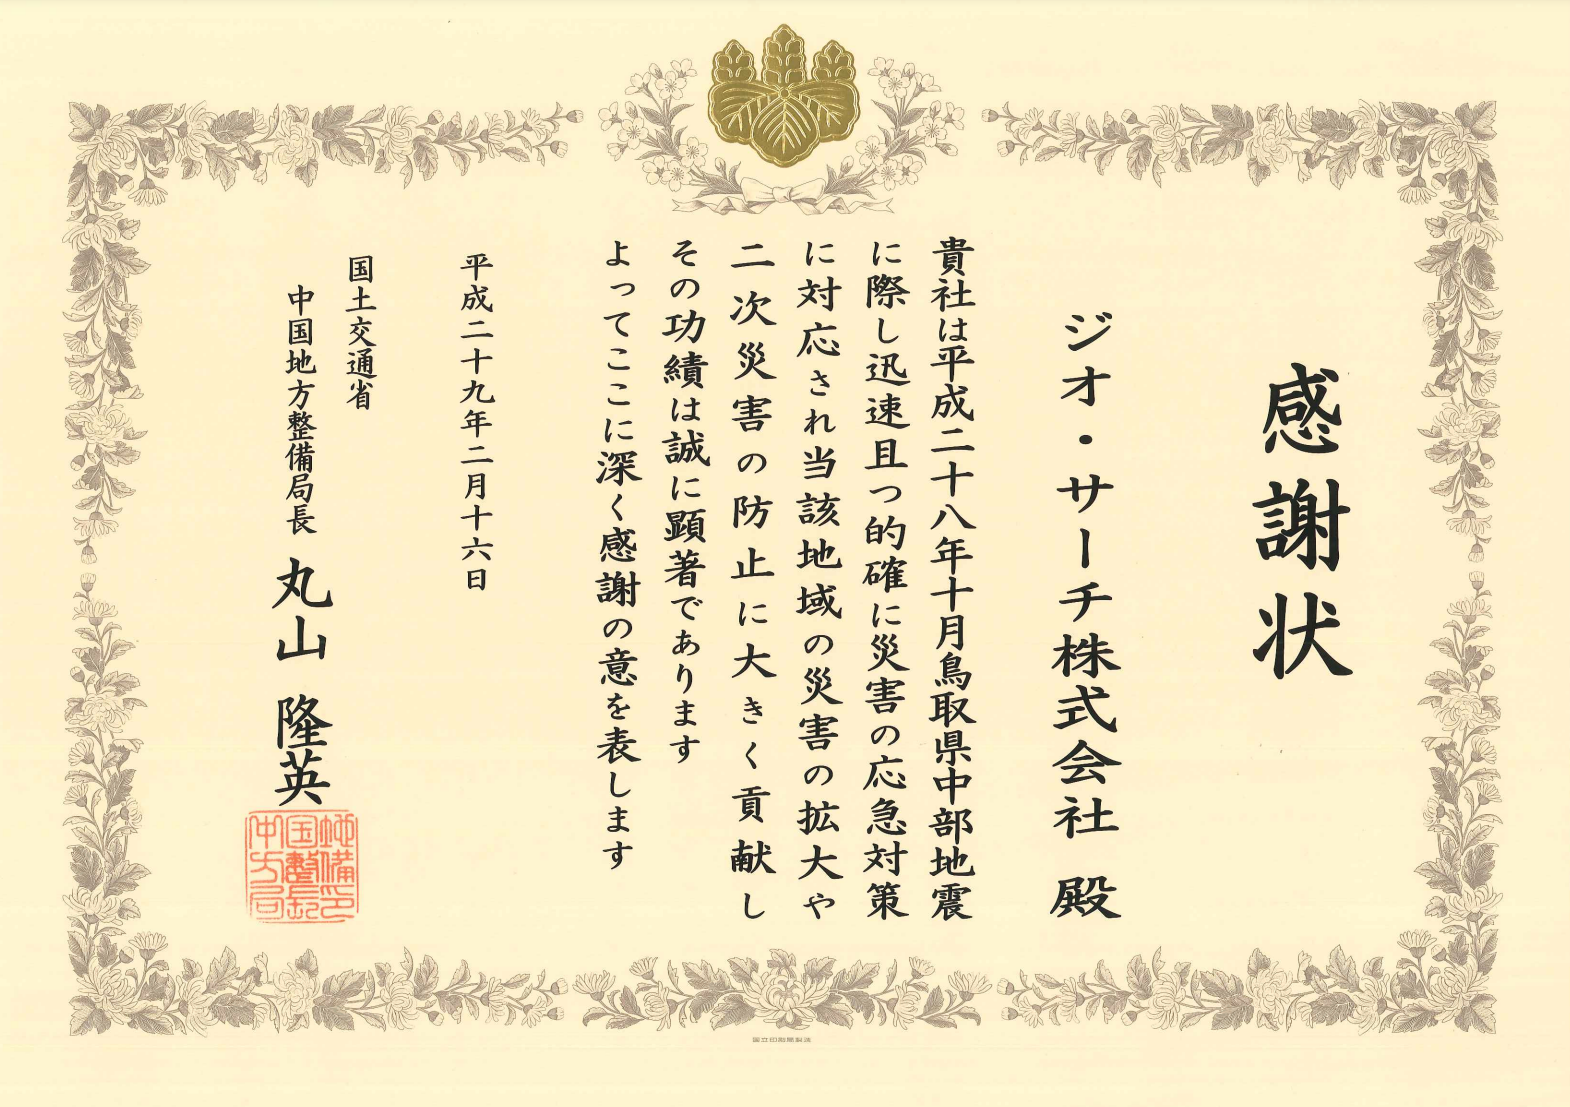 感謝状
ジオ・サーチ株式会社 殿
貴社は平成二十八年十月鳥取県中部地震
に際し迅速且つ的確に災害の応急対策
に対応され当該地域の災害の拡大や
二次災害の防止に大きく貢献し
その功績は誠に顕著であります
よってここに深く感謝の意を表します
平成二十九年二月十六日
国土交通省
中国地方整備局長 丸山 隆英